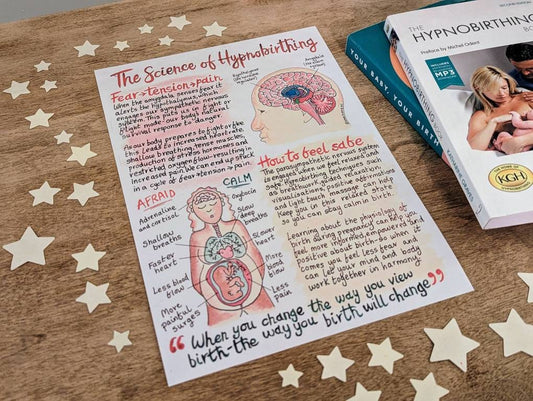 The Science of Hypnobirthing
Fear→tension→pain
When the amygdala senses fear it
alerts the hypothalamus, which
engages our sympathetic nervous
system. This puts us in fight or
flight mode - our body's natural
survival response to danger.
As our body prepares to fight or flee
this leads to increased heart rate,
shallow breathing, tense muscles,
production of stress hormones and
restricted oxygen flow - resulting in
increased pain. We can end up stuck
in a cycle of fear→tension→pain.
Hypothalamus
Amygdala
AFRAID
Adrenaline
and cortisol
Shallow
breaths
Faster
heart
Less blood
flow
More
painful
surges
CALM
Oxytocin
Slow
deep
breaths
Slower
heart
More
blood
flow
Less
pain
How to feel safe
The parasympathetic nervous system
is engaged when we feel relaxed and
safe. Hypnobirthing techniques such
as breathwork, guided relaxation,
visualisation, positive affirmations
and light touch massage can help
keep you in this relaxed state
so you can stay calm in birth.
Learning about the physiology of
birth during pregnancy can help you
feel more informed, empowered and
positive about birth - so when it
comes you feel less fear and
can let your mind and body
work together in harmony.
“When you change the way you view
birth - the way you birth will change”
YOUR BABY, YOUR BIRTH
THE
HYPNOBIRTHING
BO
Preface by Michel Odent
INCLUDES
MP3
KATHARINE GRAVES
KGH
HYPNOBIRTHING